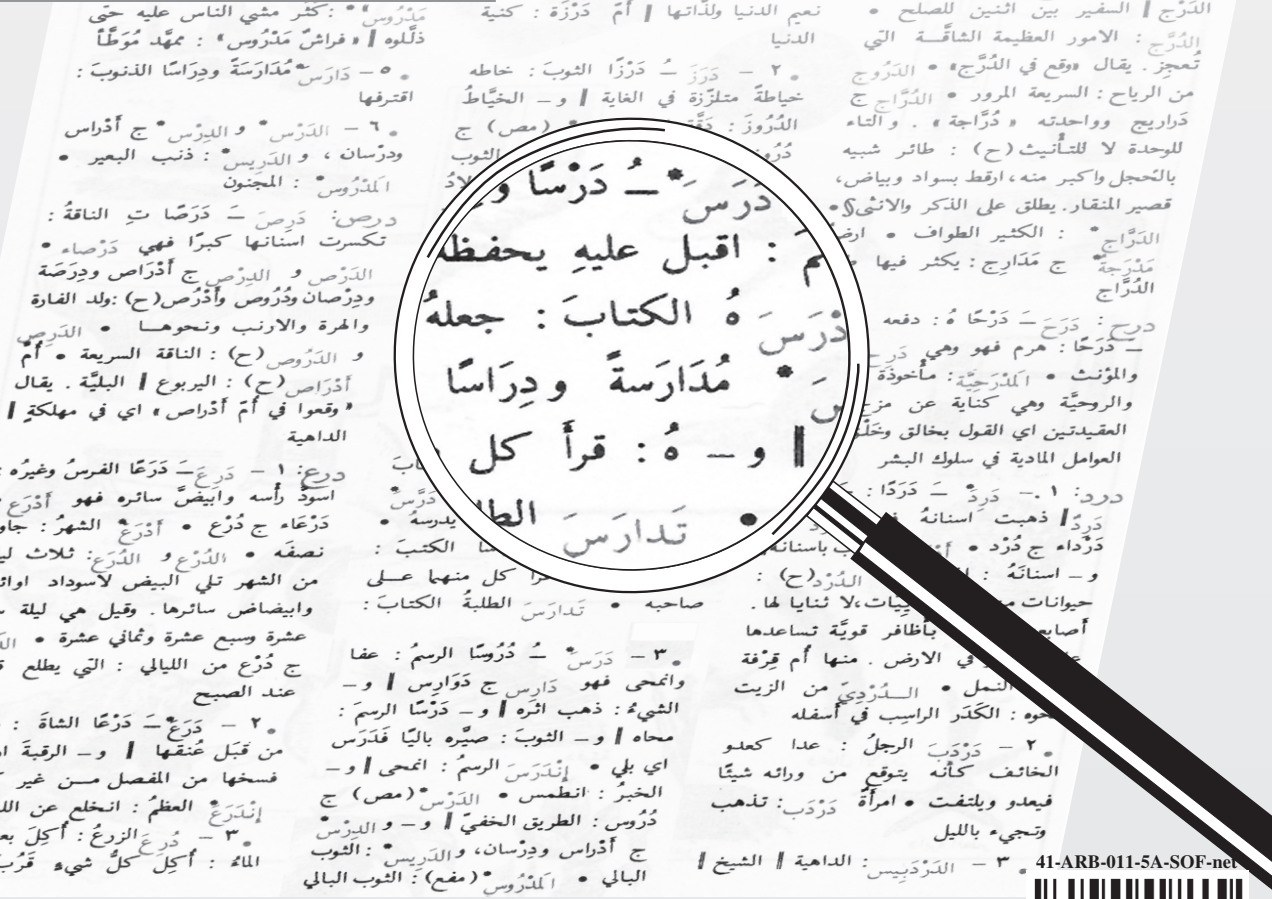 الدَرْج ‖ السفير بين اثنين للصلح •
الدُرَّج : الامور العظيمة الشاقَّـة التي
تُعجِز . يقال «وقع في الدُرَّج» • الدَرُوج
من الرياح : السريعة المرور • الدُرَّاج ج
دَراريج وواحدته « دُرَّاجة » . والتاء
للوحدة لا للتأنيث (ح) : طائر شبيه
بالحَجل واكبر منه، ارقط بسواد وبياض،
قصير المنقار. يطلق على الذكر والانثى •
الدَرَّاج : الكثير الطواف • ارض
مَدْرَجَة ج مَدَارِج : يكثر فيها
الدُرَّاج
درح : دَرَحَ ـَ دَرْحًا هُ : دفعه
ـَ دَرَحًا : هرم فهو وهي دَرِح
والمؤنث • المَدْرَحِيَّة : مأخوذة
والروحيَّة وهي كناية عن مزج
العقيدتين اي القول بخالق وخَلْق
العوامل المادية في سلوك البشر
درد : ١ - دَرِدَ ـَ دَرَدًا :
دَرِدٌ ‖ ذهبت اسنانهُ
دَرْداء ج دُرْد •
و – اسنانَهُ :
الدُرْد (ح) :
حيوانات
لا ثنايا لها .
بأظافر قويَّة تساعدها
في الارض . منها أم قِرْفة
النمل • الـدُرْدِيّ من الزيت
نحوه : الكَدَر الراسِب في أسفله
٢ – دَرْدَبَ الرجلُ : عدا كعدو
الخائف كأنَّه يتوقع من ورائه شيئًا
فيعدو ويلتفت • امرأةٌ دَرْدَب : تذهب
وتجيء بالليل
٣ – الدَرْدَبِيس : الداهية ‖ الشيخ ‖
نعيم الدنيا ولذّاتها ‖ أمّ دَرْزَة : كنية
الدنيا
٢ – دَرَزَ ـُ دَرْزًا الثوبَ : خاطه
خياطةً متلزّزة في الغاية ‖ و – الخيَّاطُ
الدُرُوزَ : دقَّق (مص) ج
الثوب
دَرَسَ ـُ دَرْسًا و
: اقبل عليهِ يحفظه
دْرَسَ هُ الكتابَ : جعلهُ
مُدَارَسةً ودِرَاسًا
‖ و – هُ : قرأ كل
• تَدارَسَ الطل
يدرسهُ •
الكتبَ :
كل منهما عـلى
صاحبه • تَدارَسَ الطلبةُ الكتابَ :
٣ – دَرَسَ ـُ دُرُوسًا الرسمُ : عفا
وانمحى فهو دَارِس ج دَوَارِس ‖ و –
الشيءُ : ذهب اثره ‖ و – دَرْسًا الرسمَ :
محاه ‖ و – الثوبَ : صيَّره باليًا فَدَرَس
اي بلي • إنْدَرَسَ الرسمُ : انمحى ‖ و –
الخبرُ : انطمس • الدَرْس (مص) ج
دُرُوس : الطريق الخفيّ ‖ و – و الدِرْس
ج أدْراس ودِرْسان، والدَرِيس : الثوب
البالي • المَدْرُوس (مفع) : الثوب البالي
مَدْرُوس : كَثُر مشي الناس عليه حتى
ذلَّلوه ‖ «فراشٌ مَدْرُوس» : ممهَّد مُوَطَّأ
٥ – دَارَسَ مُدَارَسَةً ودِرَاسًا الذنوبَ :
اقترفها
٦ – الدَرْس و الدِرْس ج أدْراس
ودرْسان ، و الدَرِيس : ذنب البعير •
المَدْرُوس : المجنون
درص : دَرِصَ ـَ دَرَصًا تِ الناقةُ :
تكسرت اسنانها كبرًا فهي دَرْصاء •
الدَرْص و الدِرْص ج أدْرَاص ودِرَصَة
ودِرْصان ودُرُوص وأدْرُص (ح) : ولد الفارة
والهرة والارنب ونحوهـا • الدَرِص
و الدَرُوص (ح) : الناقة السريعة • أمّ
أدْرَاص (ح) : اليربوع ‖ البليَّة . يقال
«وقعوا في أمّ أدْراص» اي في مهلكةٍ ‖
الداهية
درع : ١ – دَرِعَ ـَ دَرَعًا الفرسُ وغيرُه :
اسودَّ رأسه وابيضَّ سائره فهو أدْرَع
دَرْعَاء ج دُرْع • أدْرَعَ الشهرُ : جاوز
نصفَه • الدُرْع و الدُرَع : ثلاث
من الشهر تلي البيض لاسوداد
وابيضاض سائرها. وقيل هي ليلة
عشرة وسبع عشرة وثماني عشرة •
ج دُرْع من الليالي : التي يطلع
عند الصبح
٢ – دَرَعَ ـَ دَرْعًا الشاةَ :
من قبَل عُنقها ‖ و – الرقبةَ
فسخها من المفصل مـن غير
إنْدَرَعَ العظمُ : انخلع عن
٣ – دُرِعَ الزرعُ : أُكِلَ
الماءُ : أُكِلَ كلُّ شيء قَرُبَ
41-ARB-011-5A-SOF-net